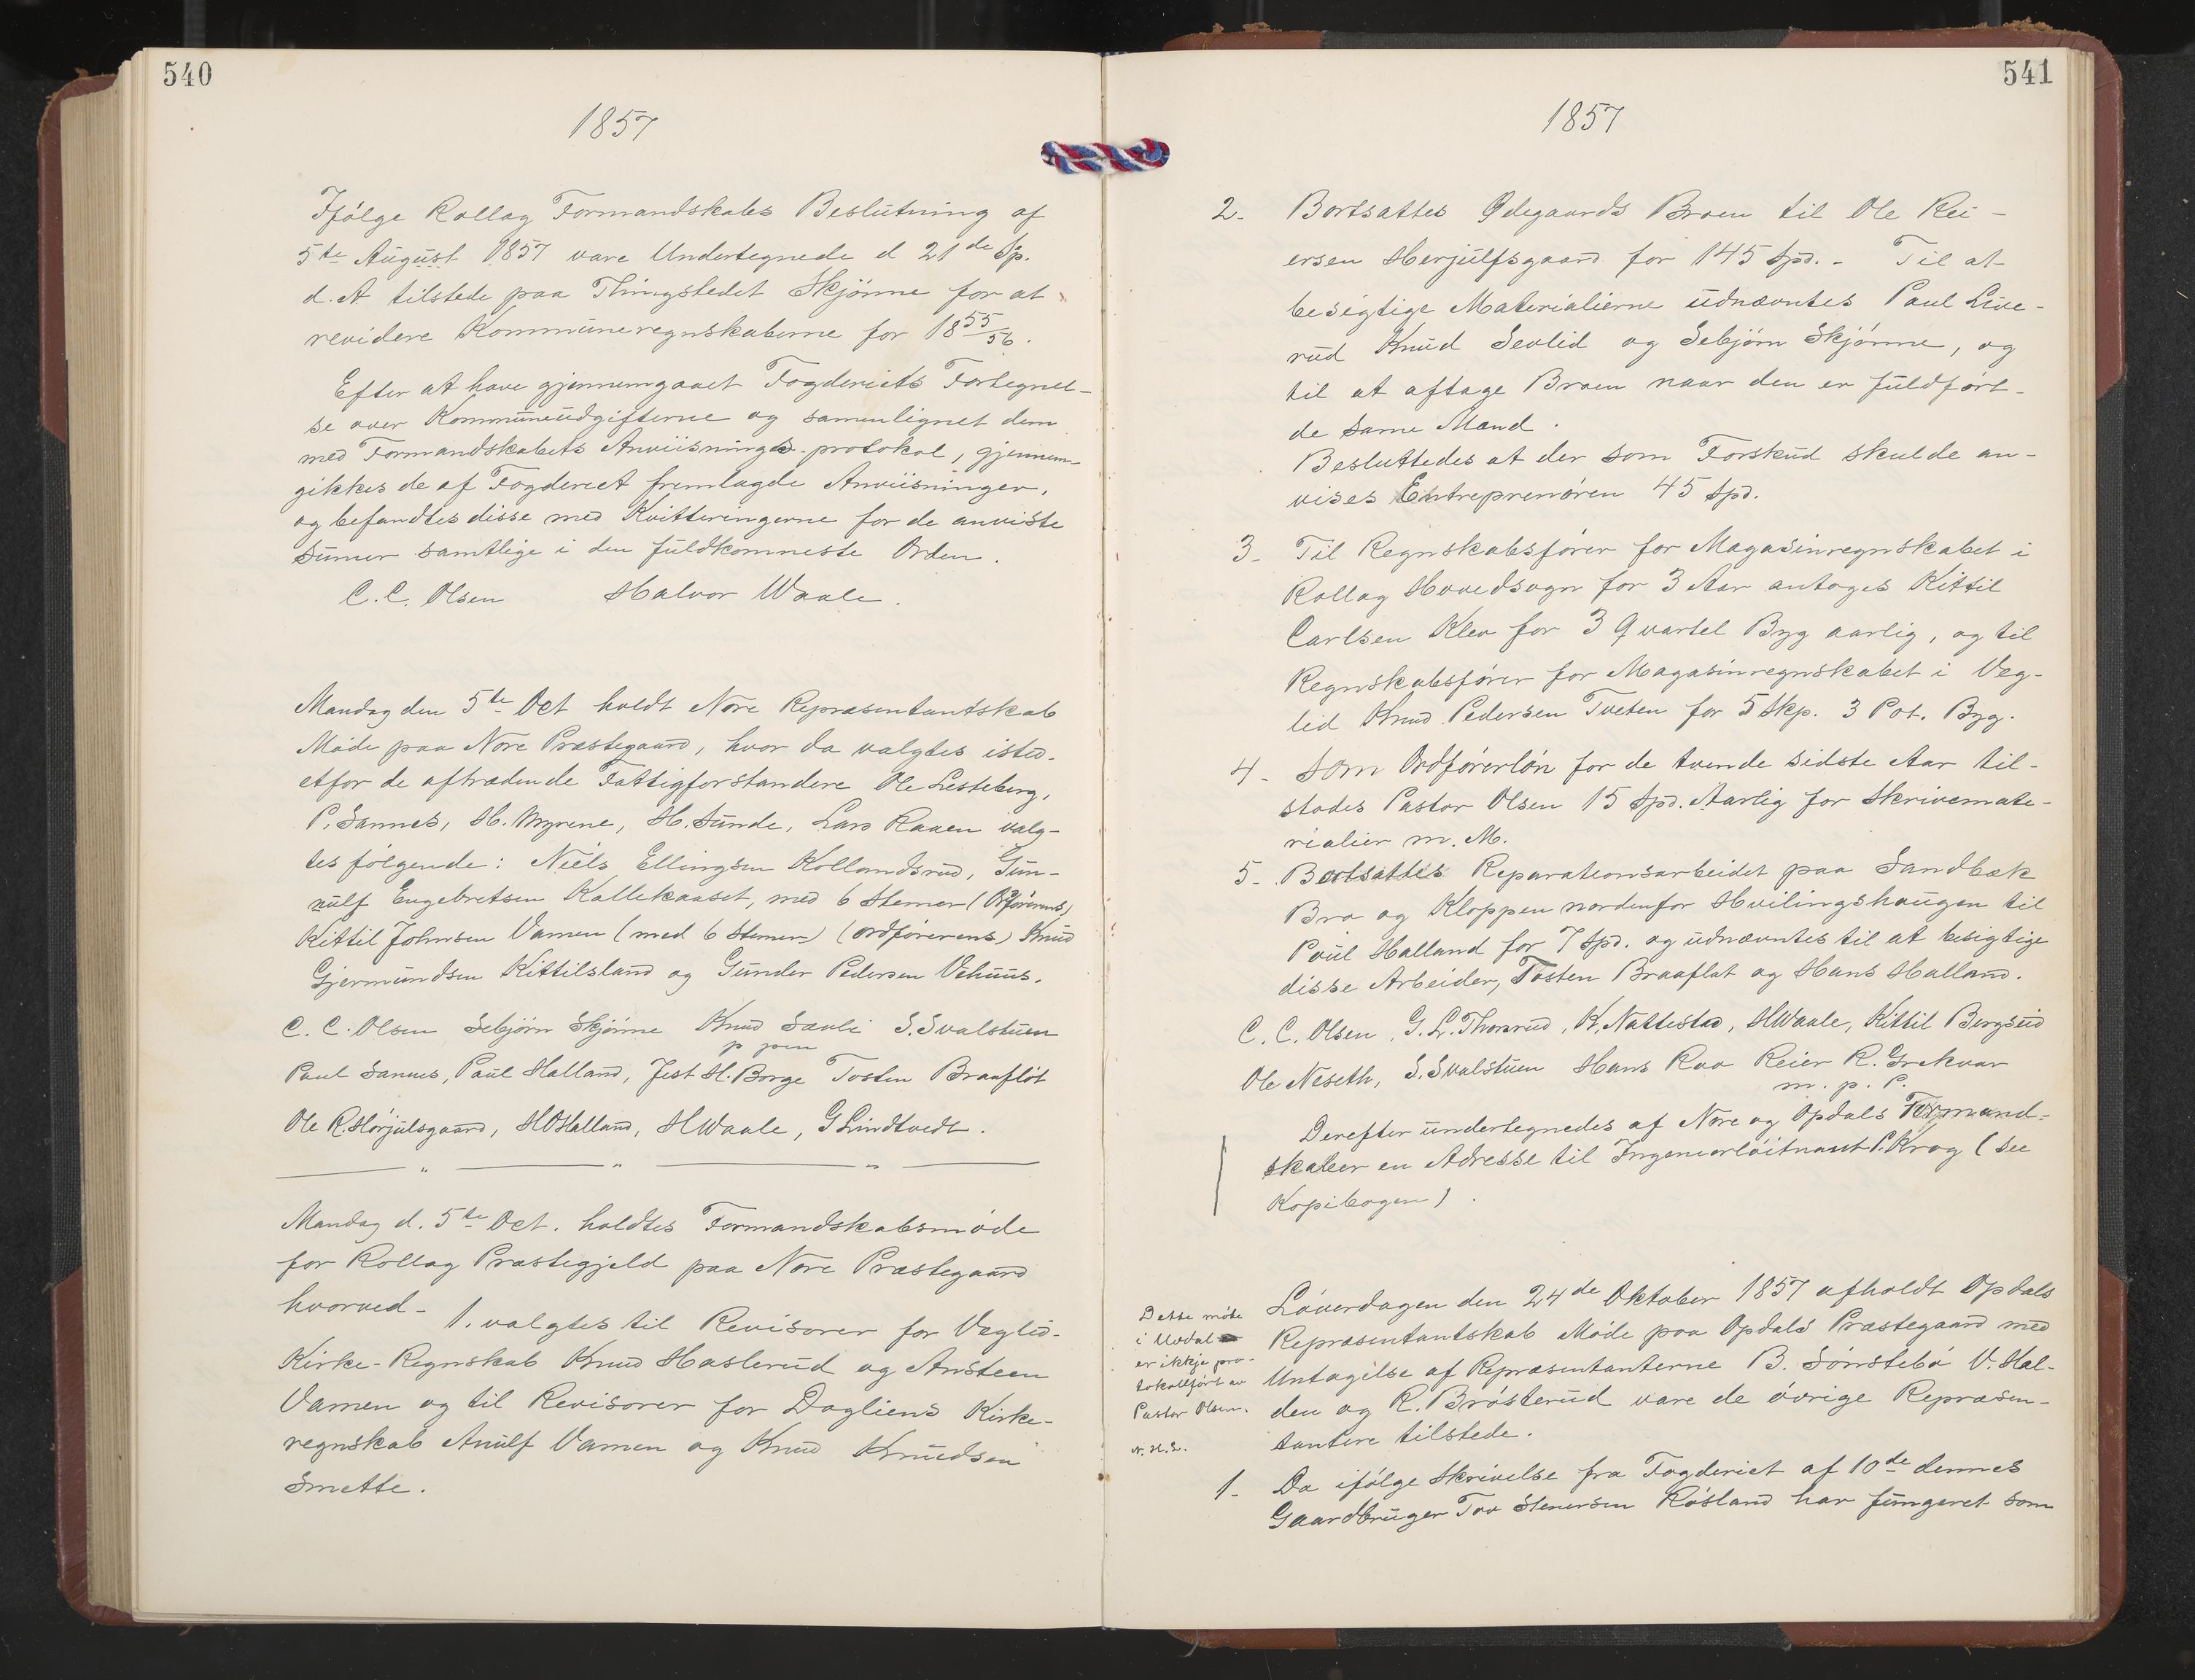 540
1857
Ifölge Rollag Formandskabs Beslutning af
5te August 1857 vare Undertegnede d 21de Sp.
d. A tilstede paa Thingstedet Skjönne for at
revidere Kommuneregnskaberne for 1855/56.
Efter at have gjennemgaaet Fogderiets Fortegnel-
se over Kommuneudgifterne og samenlignet dem
med Formandskabets Anviisnings-protokol, gjennem-
gikkes de af Fogderiet fremlagde Anviisninger,
og befandtes disse med Kvitteringerne for de anviste
Sumer samtlige i den fuldkomneste Orden.
C. C. Olsen Halvor Waale.
Mandag den 5te Oct holdt Nore Repræsentantskab
Möde paa Nore Præstegaard, hvor da valgtes isted-
etfor de aftrædende Fattigforstandere Ole Lesteberg,
P. Sannes, H. Myrene, H. Sunde, Lars Raaen valg-
tes følgende: Niels Ellingsen Kollandsrud, Gun-
nulf Engebretsen Kallekaaset, med 6 Stemer (Ordförerens)
Kittil Johnsen Vamen (med 6 Stemer) (ordförerens) Knud
Gjermundsen Kittilsland og Gunder Pedersen Vehuus.
C. C. Olsen Sebjörn Skjönne Knud Sævli S. Svalstuen
p pen
Paul Sannes, Paul Halland, Jest H. Borge Tosten Braaflöt
Ole R. Hörjulsgaard, HOHalland, HWaale, G Lindtvedt.
Mandag d. 5te Oct. holdtes Formandskabsmöde
for Rollag Præstegjeld paa Nore Præstegaard
hvorved- 1. valgtes til Revisorer for Veglid-
Kirke-Regnskab Knud Haslerud og Ansteen
Vamen og til Revisorer for Dagliens Kirke-
regnskab Anulf Vamen og Knud Knudsen
Smette.
541
1857
2. Bortsattes Ødegaards Broen til Ole Rei-
ersen Herjulfsgaard for 145 Spd. - Til at
besigtige Materialierne udnævntes Paul Live-
rud Knud Sevlid og Sebjörn Skjönne, og
til at aftage Broen naar den er fuldfört-
de Same Mænd.
Besluttedes at der som Forskud skulde an-
vises Entreprenören 45 Spd.
3- Til Regnskabsförer for Magasinregnskabet i
Rollag Hovedsogn for 3 Aar antoges Kittil
Carlsen Klev for 3 Qvartel Byg aarlig, og til
Regnskabsförer for Magasinregnskabet i Veg-
lid Knud Pedersen Tveten for 5 Skp. 3 Pot. Byg.
4- Som Ordförerlön for de tvende sidste Aar til-
stodes Pastor Olsen 15 Spd. Aarlig for Skrivemate-
rialier m. M.
5- Bortsattes Reparationsarbeidet paa Sandbæk
Bro og Kloppen nordenfor Hvilingshaugen til
Poul Halland for 7 Spd. og udnævntes til at besigtige
disse Arbeider, Tosten Braaflat og Hans Halland.
C. C. Olsen, G. L. Thorsrud, K. Nattestad, HWaale, Kittil Bergsud
Ole Neseth, S. Svalstuen Hans Roo Reier R. Grekvar
m. p. P.
Derefter undertegnedes af Nore og Opdals Formand-
skaber en Adresse til Ingeniörlöitnant P. Krag (see
Kopibogen).
Dette möte
i Uvdal
er ikkje pro-
tokollfört av
Pastor Olsen.
N. H. L.
Löverdagen den 24de Oktober 1857 afholdt Opdals
Repræsentantskab Möde paa Opdals Præstegaard med
Untagelse af Repræsentanterne B. Sönstebö V. Hal-
den og R. Brösterud vare de övrige Repræsen-
tantere tilstede.
1- Da ifölge Skrivelse fra Fogderiet af 10de dennes
Gaardbruger Tov Stenersen Rösland har fungeret som